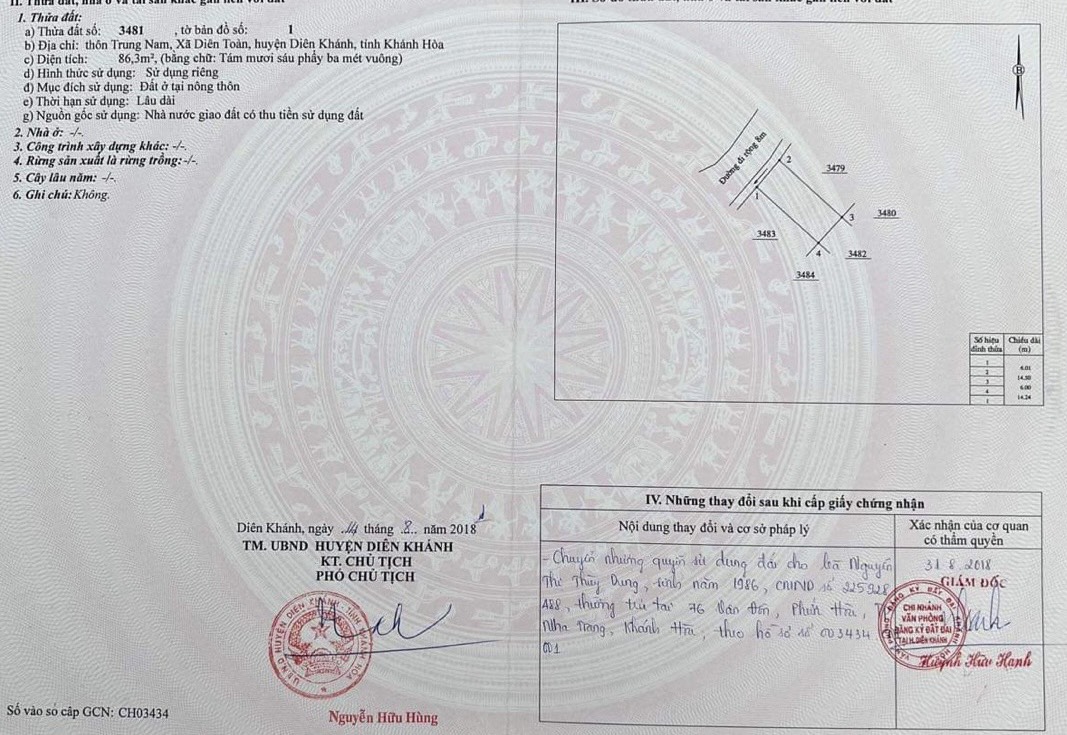 II. Thửa đất, nhà ở và tài sản khác gắn liền với đất
1. Thửa đất:
a) Thửa đất số: 3481 , tờ bản đồ số: 1
b) Địa chỉ: thôn Trung Nam, Xã Diên Toàn, huyện Diên Khánh, tỉnh Khánh Hòa
c) Diện tích: 86,3m², (bằng chữ: Tám mươi sáu phẩy ba mét vuông)
d) Hình thức sử dụng: Sử dụng riêng
đ) Mục đích sử dụng: Đất ở tại nông thôn
e) Thời hạn sử dụng: Lâu dài
g) Nguồn gốc sử dụng: Nhà nước giao đất có thu tiền sử dụng đất
2. Nhà ở: -/-.
3. Công trình xây dựng khác: -/-.
4. Rừng sản xuất là rừng trồng:-/-.
5. Cây lâu năm: -/-.
6. Ghi chú: Không.
Diên Khánh, ngày 14 tháng 8.. năm 2018
TM. UBND HUYỆN DIÊN KHÁNH
KT. CHỦ TỊCH
PHÓ CHỦ TỊCH
Nguyễn Hữu Hùng
Số vào sổ cấp GCN: CH03434
III. Sơ đồ thửa đất, nhà ở và tài sản khác gắn liền với đất
B
Đường đi rộng 8m
2
3479
1
3
3480
3483
4
3482
3484
Số hiệu đỉnh thửa Chiều dài (m)
1
6.01
2
14.50
3
6.00
4
14.24
1
IV. Những thay đổi sau khi cấp giấy chứng nhận
Nội dung thay đổi và cơ sở pháp lý
Xác nhận của cơ quan
có thẩm quyền
- Chuyển nhượng quyền sử dụng đất cho bà Nguyễn
Thị Thùy Dung, sinh năm 1986, CMND số 225928
488, thường trú tại 76 Vân Đồn, Phước Hòa,
Nha Trang, Khánh Hòa, theo hồ sơ số 003434
001
31.8.2018
GIÁM ĐỐC
CHI NHÁNH
VĂN PHÒNG
ĐĂNG KÝ ĐẤT ĐAI
TẠI H.DIÊN KHÁNH
Huỳnh Hữu Hạnh